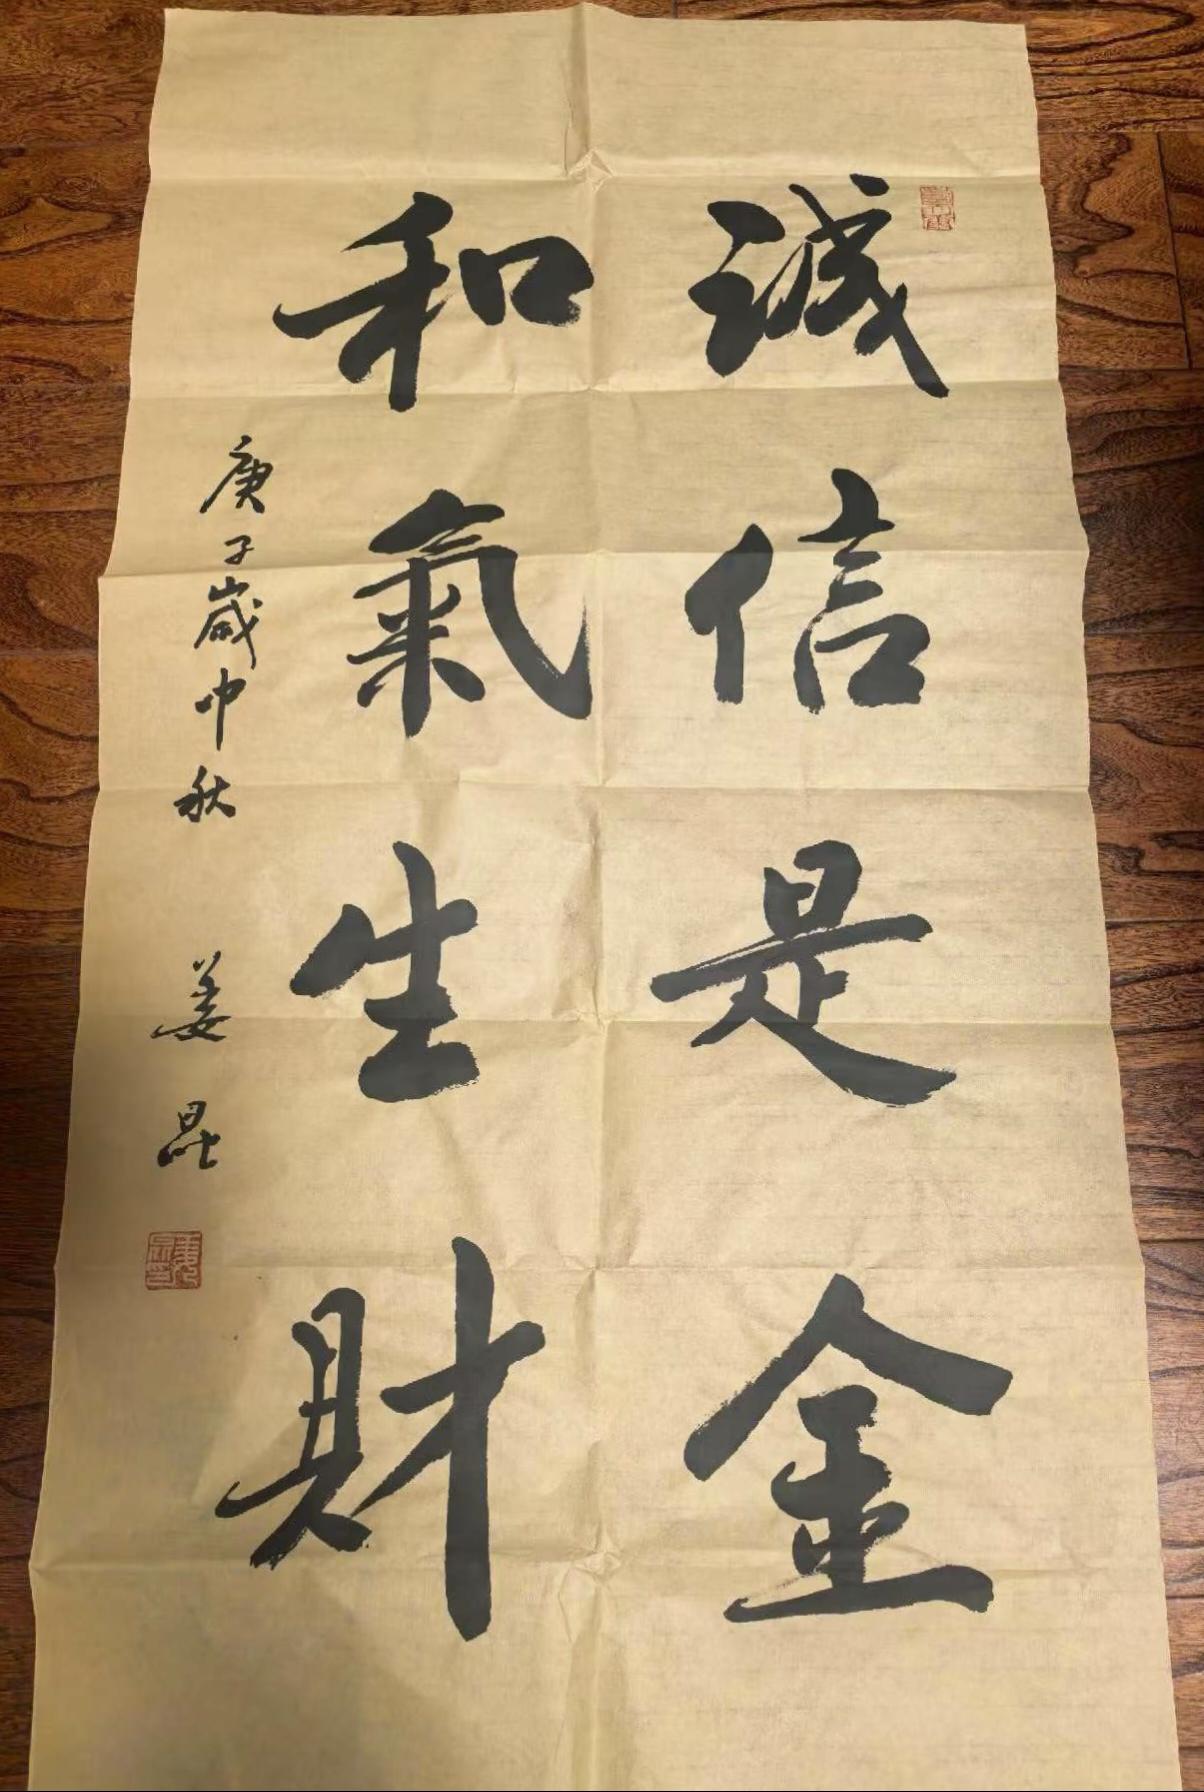 誠信是金
和氣生財
庚子歲中秋 姜昆